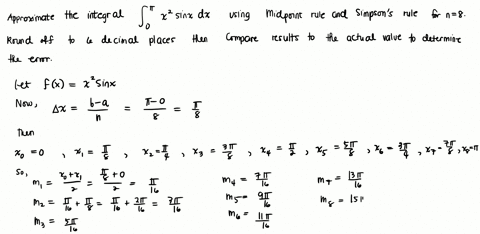 Approximate the integral ∫₀^π x² sinx dx using Midpoint rule and Simpson's rule for n=8.
Round off to 6 decimal places then compare results to the actual value to determine
the error.
Let f(x) = x² sinx
Now, Δx = (b-a)/n = (π-0)/8 = π/8
Then
x₀ = 0 , x₁ = π/8 , x₂ = π/4 , x₃ = 3π/8 , x₄ = π/2 , x₅ = 5π/8 , x₆ = 3π/4 , x₇ = 7π/8 , x₈ = π
So,
m₁ = (x₀+x₁)/2 = (π/8 + 0)/2 = π/16 m₄ = 7π/16 m₇ = 13π/16
m₂ = π/16 + π/8 = π/16 + 2π/16 = 7π/16 m₅ = 9π/16 m₈ = 15π
m₃ = 5π/16 m₆ = 11π/16